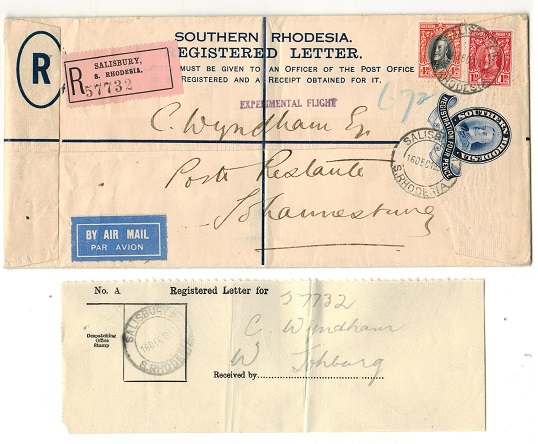 SOUTHERN RHODESIA.
REGISTERED LETTER.
MUST BE GIVEN TO AN OFFICER OF THE POST OFFICE
REGISTERED AND A RECEIPT OBTAINED FOR IT.
R
R
SALISBURY,
S. RHODESIA.
57732
EXPERIMENTAL FLIGHT
SOUTHERN RHODESIA
REGISTRATION FOUR PENCE
SALISBURY
S. RHODESIA
C. Wyndham Esq
Poste Restante
Johannesburg
BY AIR MAIL
PAR AVION
No. A
Registered Letter for
57732
Despatching
Office
Stamp
SALISBURY
S. RHODESIA
C. Wyndham
Johburg
Received by